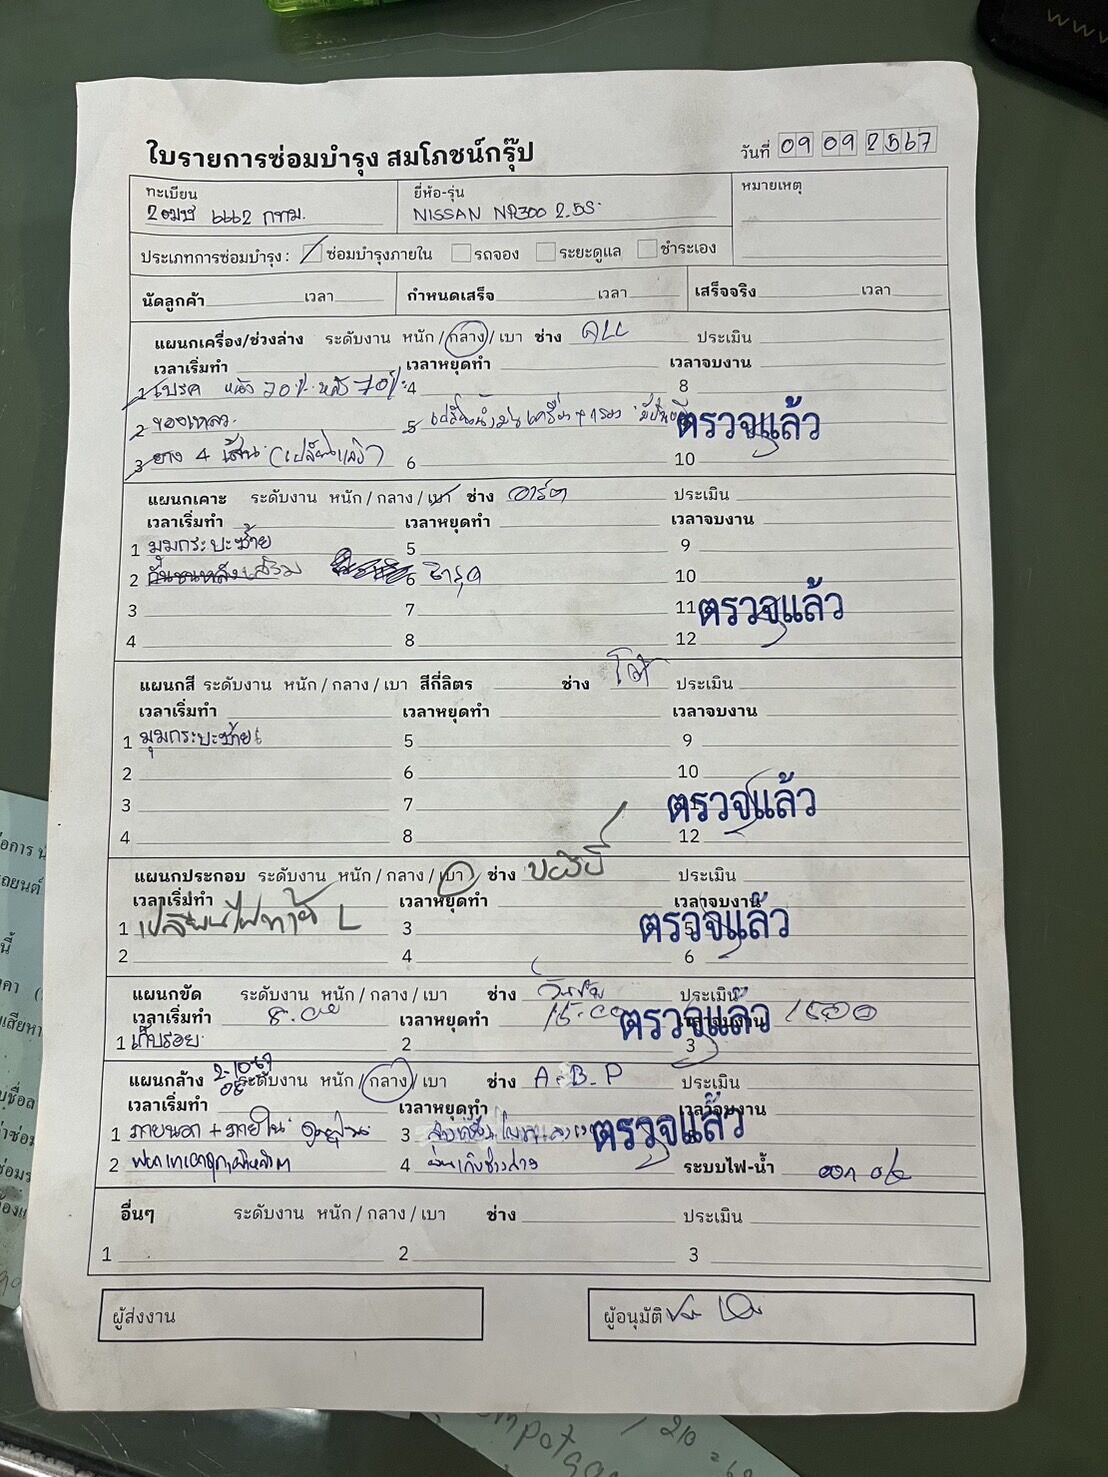 ใบรายการซ่อมบำรุง สมโภชน์กรุ๊ป
วันที่ 09 09 2567
ทะเบียน
ยี่ห้อ-รุ่น
หมายเหตุ
2ฒฆ 6662 กทม.
NISSAN NR300 2.5S
ประเภทการซ่อมบำรุง : ซ่อมบำรุงภายใน รถจอง ระยะดูแล ชำระเอง
นัดลูกค้า เวลา กำหนดเสร็จ เวลา เสร็จจริง เวลา
แผนกเครื่อง/ช่วงล่าง ระดับงาน หนัก / กลาง / เบา ช่าง ประเมิน
เวลาเริ่มทำ เวลาหยุดทำ เวลาจบงาน
1 เบรค หน้า 70% หลัง 70% 4 8
2 ของเหลว 5 เปลี่ยนน้ำมันเครื่อง + กรอง ตรวจแล้ว
3 ยาง 4 เส้น (เปลี่ยนแล้ว) 6 10
แผนกเคาะ ระดับงาน หนัก / กลาง / เบา ช่าง อาร์ต ประเมิน
เวลาเริ่มทำ เวลาหยุดทำ เวลาจบงาน
1 มุมกระบะซ้าย 5 9
2 กันชนหลังเสริม 6 ชำรุด 10
3 7 11 ตรวจแล้ว
4 8 12
แผนกสี ระดับงาน หนัก / กลาง / เบา สีกี่ลิตร ช่าง ประเมิน
เวลาเริ่มทำ เวลาหยุดทำ เวลาจบงาน
1 มุมกระบะซ้าย 5 9
2 6 10
3 7 11 ตรวจแล้ว
4 8 12
แผนกประกอบ ระดับงาน หนัก / กลาง / เบา ช่าง ประเมิน
เวลาเริ่มทำ เวลาหยุดทำ เวลาจบงาน
1 เปลี่ยนไฟท้าย L 3 5 ตรวจแล้ว
2 4 6
แผนกขัด ระดับงาน หนัก / กลาง / เบา ช่าง ประเมิน
เวลาเริ่มทำ 8.00 เวลาหยุดทำ 15.00 เวลาจบงาน 1500
1 เก็บรอย 2 3 ตรวจแล้ว
แผนกล้าง 2-10-67 ระดับงาน หนัก / กลาง / เบา ช่าง A-B-P ประเมิน
เวลาเริ่มทำ เวลาหยุดทำ เวลาจบงาน
1 ภายนอก + ภายใน ดูดฝุ่น 3 ตรวจแล้ว
2 4 ระบบไฟ-น้ำ
อื่นๆ ระดับงาน หนัก / กลาง / เบา ช่าง ประเมิน
1 2 3
ผู้ส่งงาน
ผู้อนุมัติ